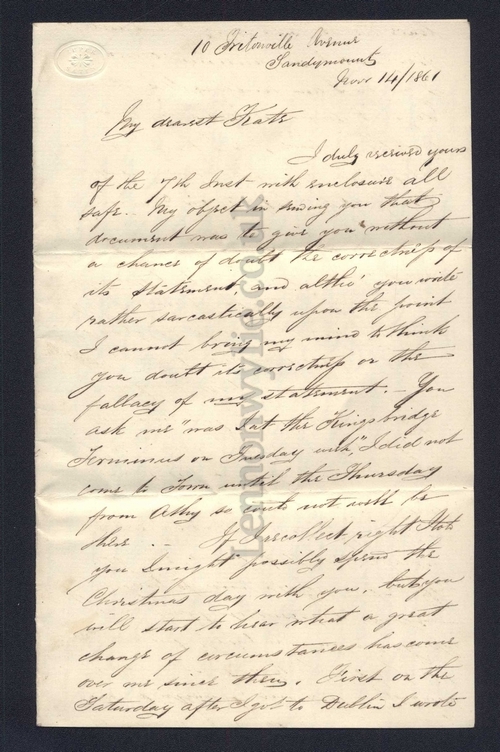 10 Tritonville Avenue
Sandymount
Novr 14/1861
My dearest Kate
I duly received yours
of the 7th Inst with enclosure all
safe. My object in giving you that
document was to give you without
a chance of doubt the correctness of
its statement, and altho' you write
rather sarcastically upon the point
I cannot bring my mind to think
you doubt its correctness or the
fallacy of my statement. – You
ask me "was I at the Kingsbridge
Terminus on Tuesday with", I did not
come to Town until the Thursday
from Athy so could not well be
there. – If I recollect right I told
you I might possibly spend the
Christmas day with you, but you
will start to hear what a great
change of circumstances has come
over me since then. First on the
Saturday after I got to Dublin I wrote
Lennonwylie.co.uk